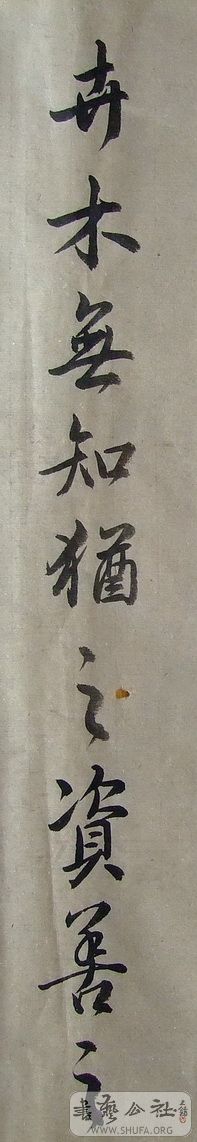 卉木無知猶之資善之
書藝公社
WWW.SHUFA.ORG